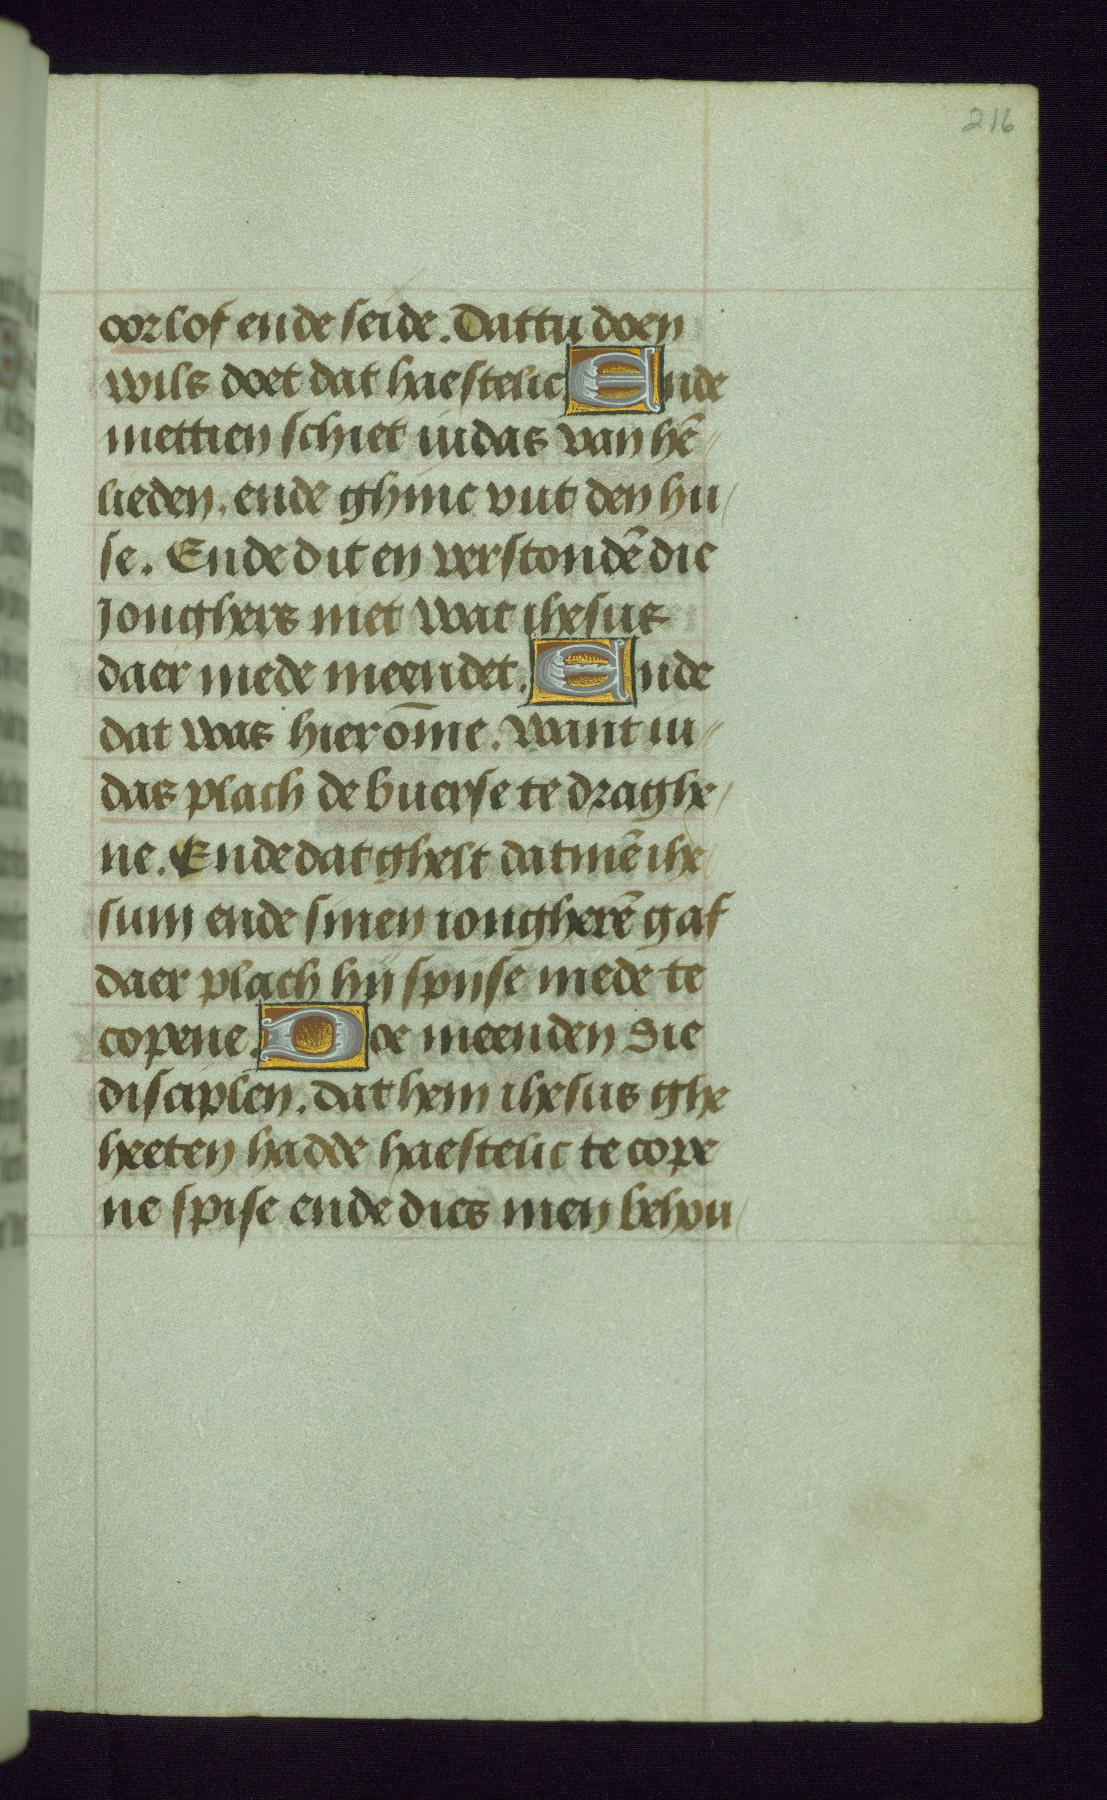 216
oorlof ende seide. Dattu doen
wils doet dat haestelic Ende
mettien schiet iudas van hē//
lieden. ende ghinc vut den hu/
se. Ende dit en verstondē die
Jonghers niet wat ihesus
daer mede meendet. Ende
dat was hierōme. want iu//
das plach de buerse te draghe/
ne. Ende dat ghelt datmē ihe
sum ende sinen iongherē gaf
daer plach hij spijse mede te
copene. Doe meenden die
disciplen. dat hem ihesus ghe
heeten hadde haestelic te cope
ne spise ende dies men behou/